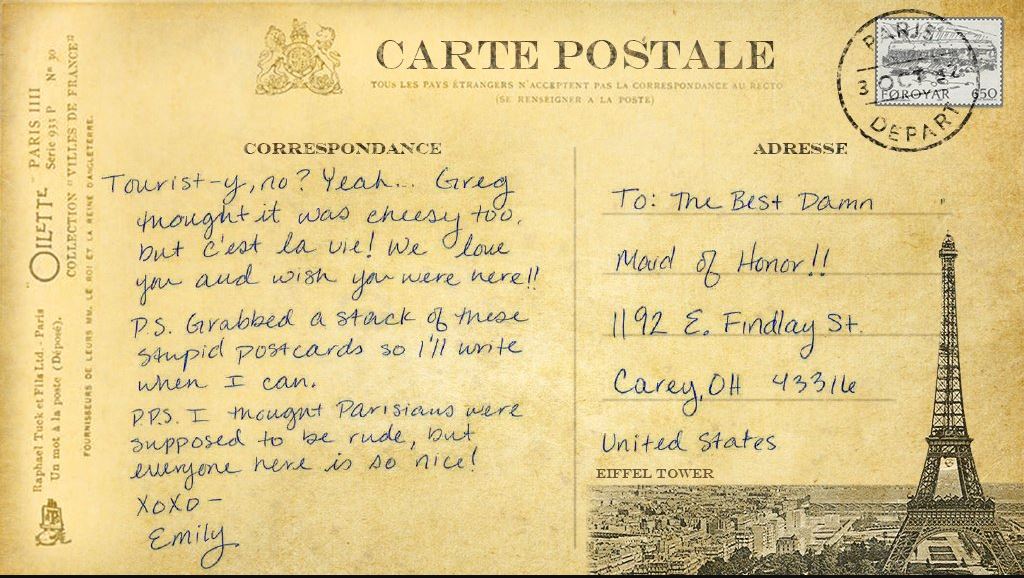 CARTE POSTALE
TOUS LES PAYS ÉTRANGERS N'ACCEPTENT PAS LA CORRESPONDANCE AU RECTO
(SE RENSEIGNER A LA POSTE)
PARIS
3 OCT 22
DEPART
FØROYAR 650
"OILETTE" PARIS IIII
Série 933 P Nº 30
COLLECTION "VILLES DE FRANCE"
FOURNISSEURS DE LEURS MM. LE ROI ET LA REINE D'ANGLETERRE.
Raphael Tuck et Fils Ltd. - Paris
Un mot à la poste (Déposé).
CORRESPONDANCE
Tourist-y, no? Yeah... Greg
thought it was cheesy too.
but c'est la vie! We love
you and wish you were here!!
P.S. Grabbed a stack of these
stupid postcards so I'll write
when I can.
P.P.S. I thought Parisians were
supposed to be rude, but
everyone here is so nice!
XOXO-
Emily
ADRESSE
To: The Best Damn
Maid of Honor!!
1192 E. Findlay St.
Carey, OH 43316
United States
EIFFEL TOWER